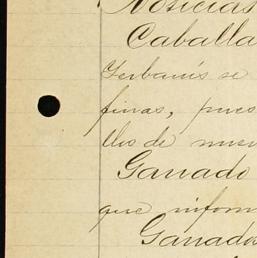 Noticias
Caballa
se
finas, pues
llos de nues
Ganado
que inform
Ganado